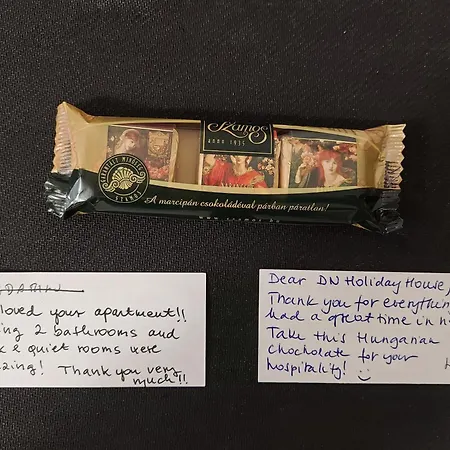 Szamos
ANNO 1935
GARANTÁLT MINŐSÉG
SZAMOS
A marcipán csokoládéval párban páratlan!
loved your apartment!!
2 bathrooms and
& quiet rooms were
Thank you very
much!!
Dear DN Holiday House,
Thank you for everything
had a great time in
Take this Hungarian
chocholate for your
hospitality! :)